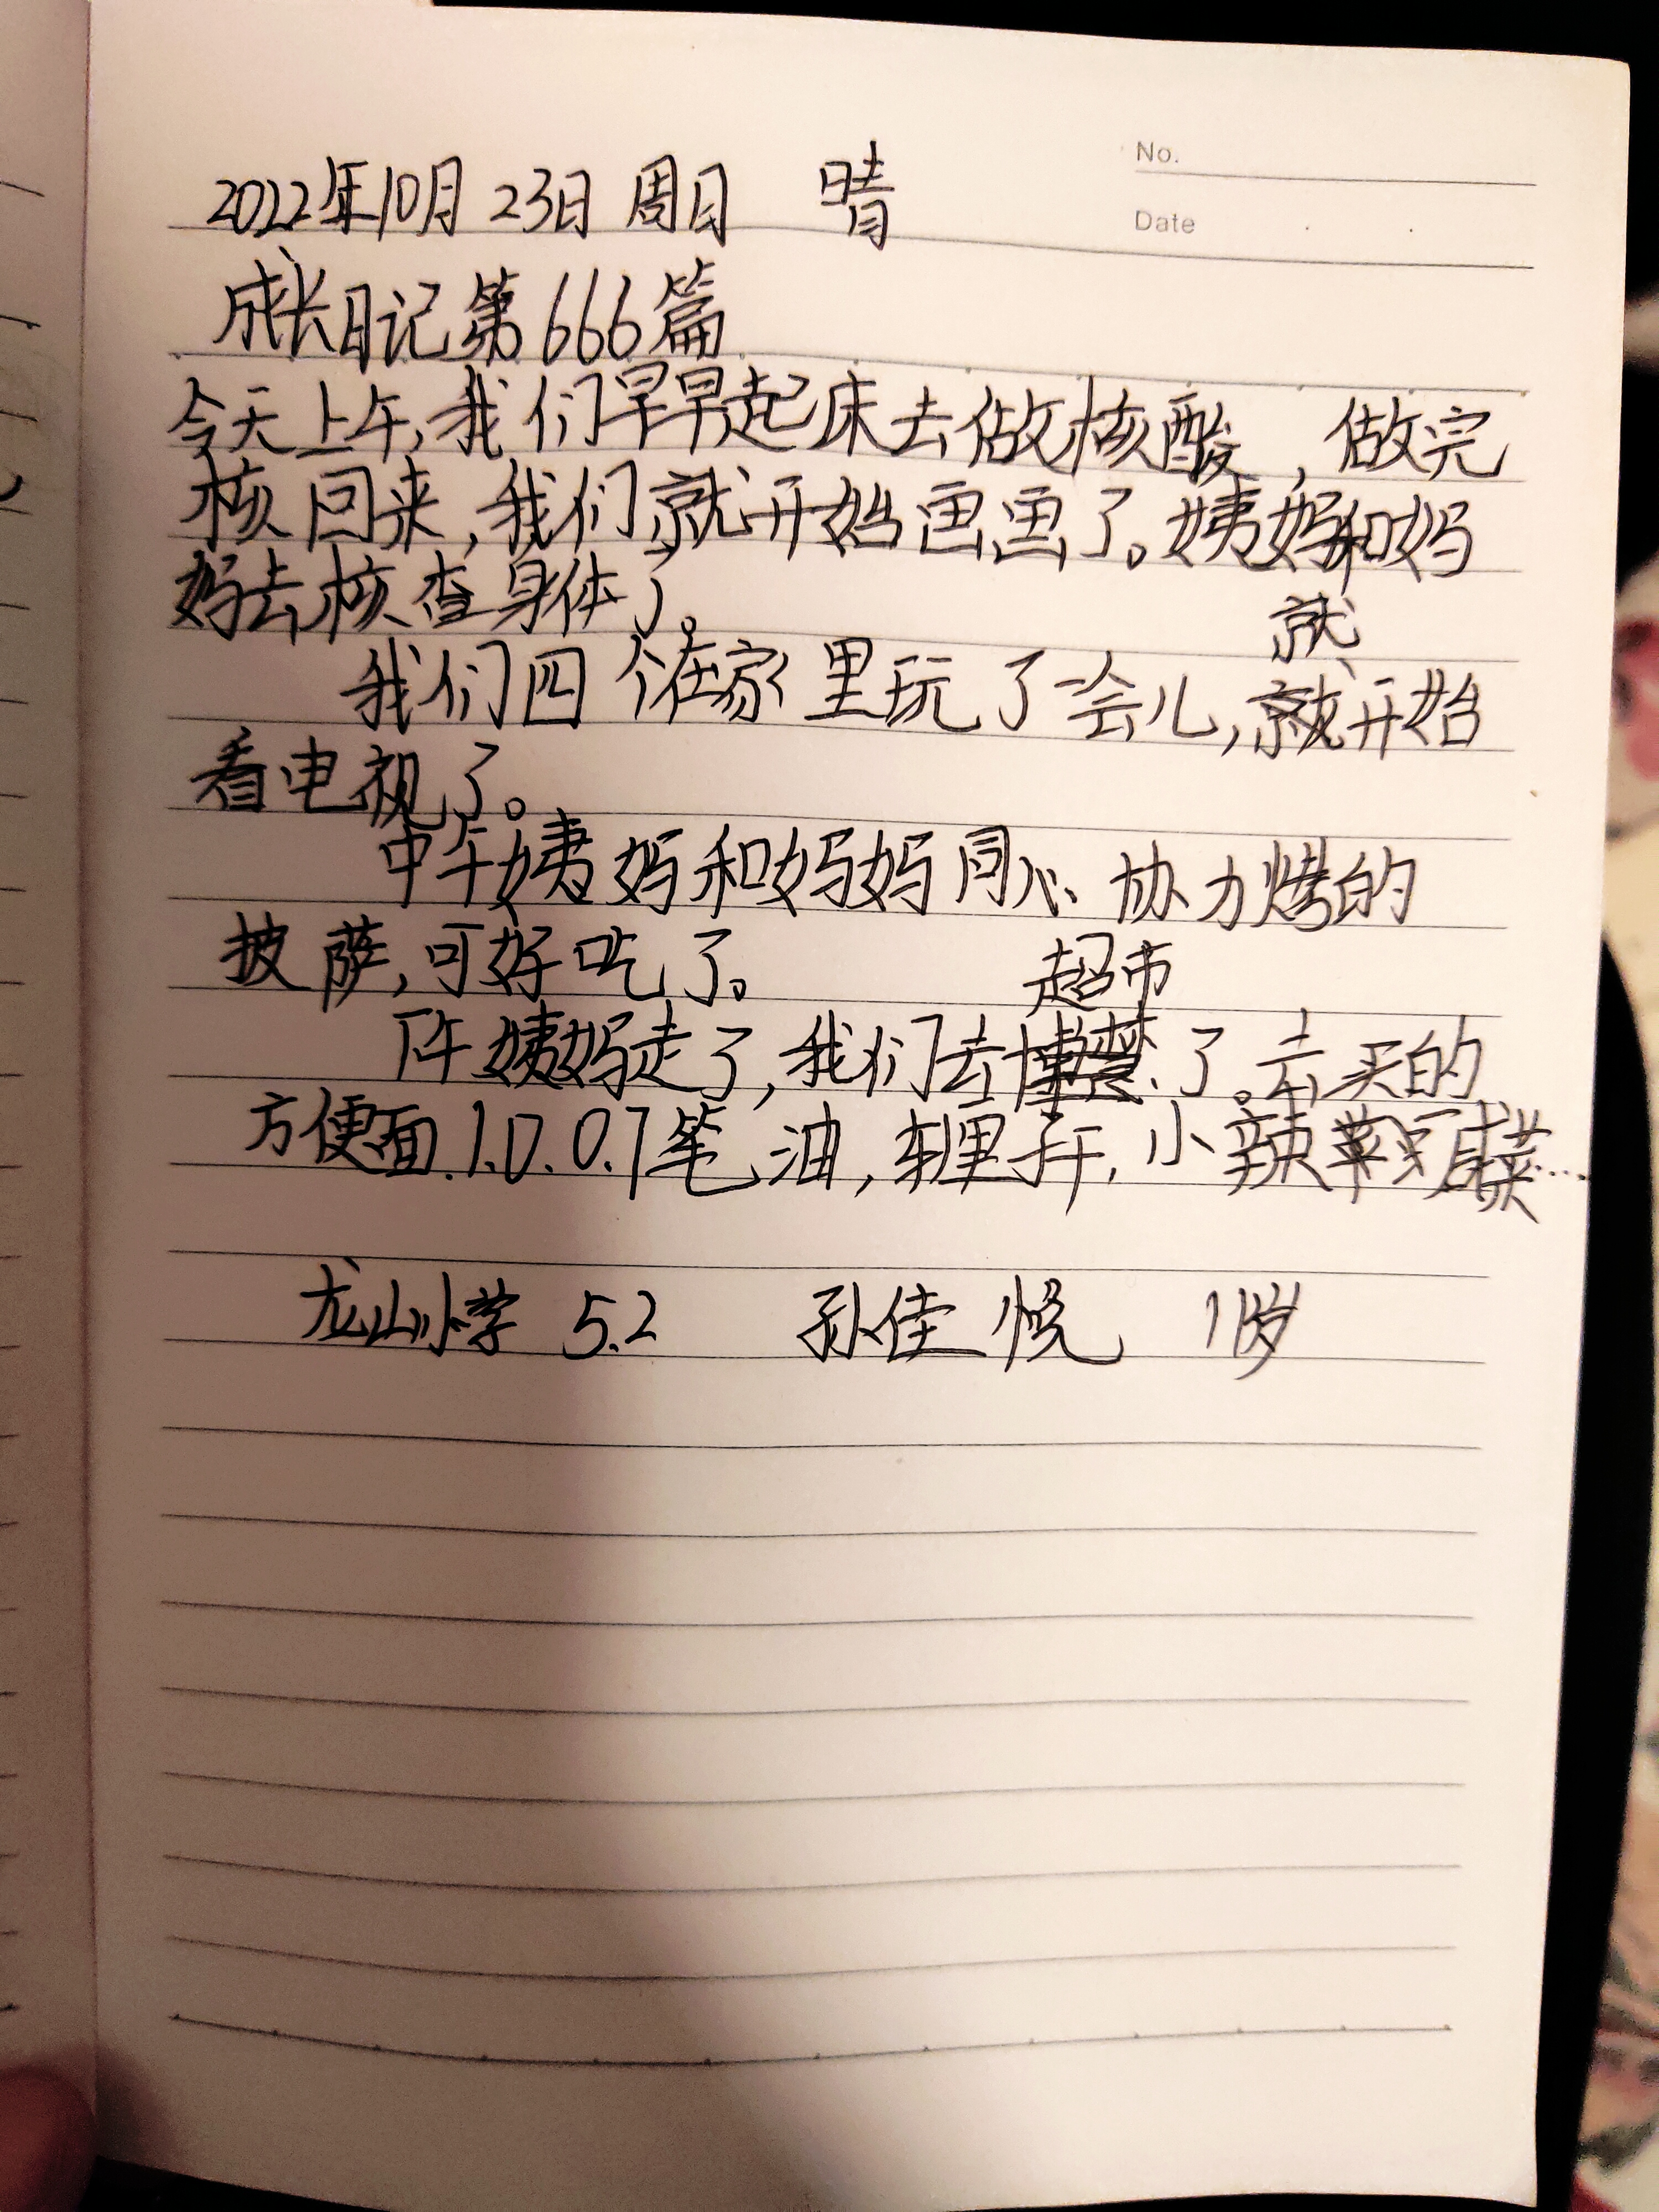 No.
Date
2022年10月23日 周日 晴
成长日记第666篇
今天上午,我们早早起床去做核酸,做完
核回来,我们就开始画画了。姨妈和妈
妈去核查身体了。
就
我们四个在家里玩了一会儿,就开始
看电视了。
中午姨妈和妈妈同心协力烤的
披萨,可好吃了。
超市
下午姨妈走了,我们去了。去买的
方便面.1.0.0.7笔,油,车厘子干,小辣咸菜…
龙山小学 5.2 孙佳悦 11岁